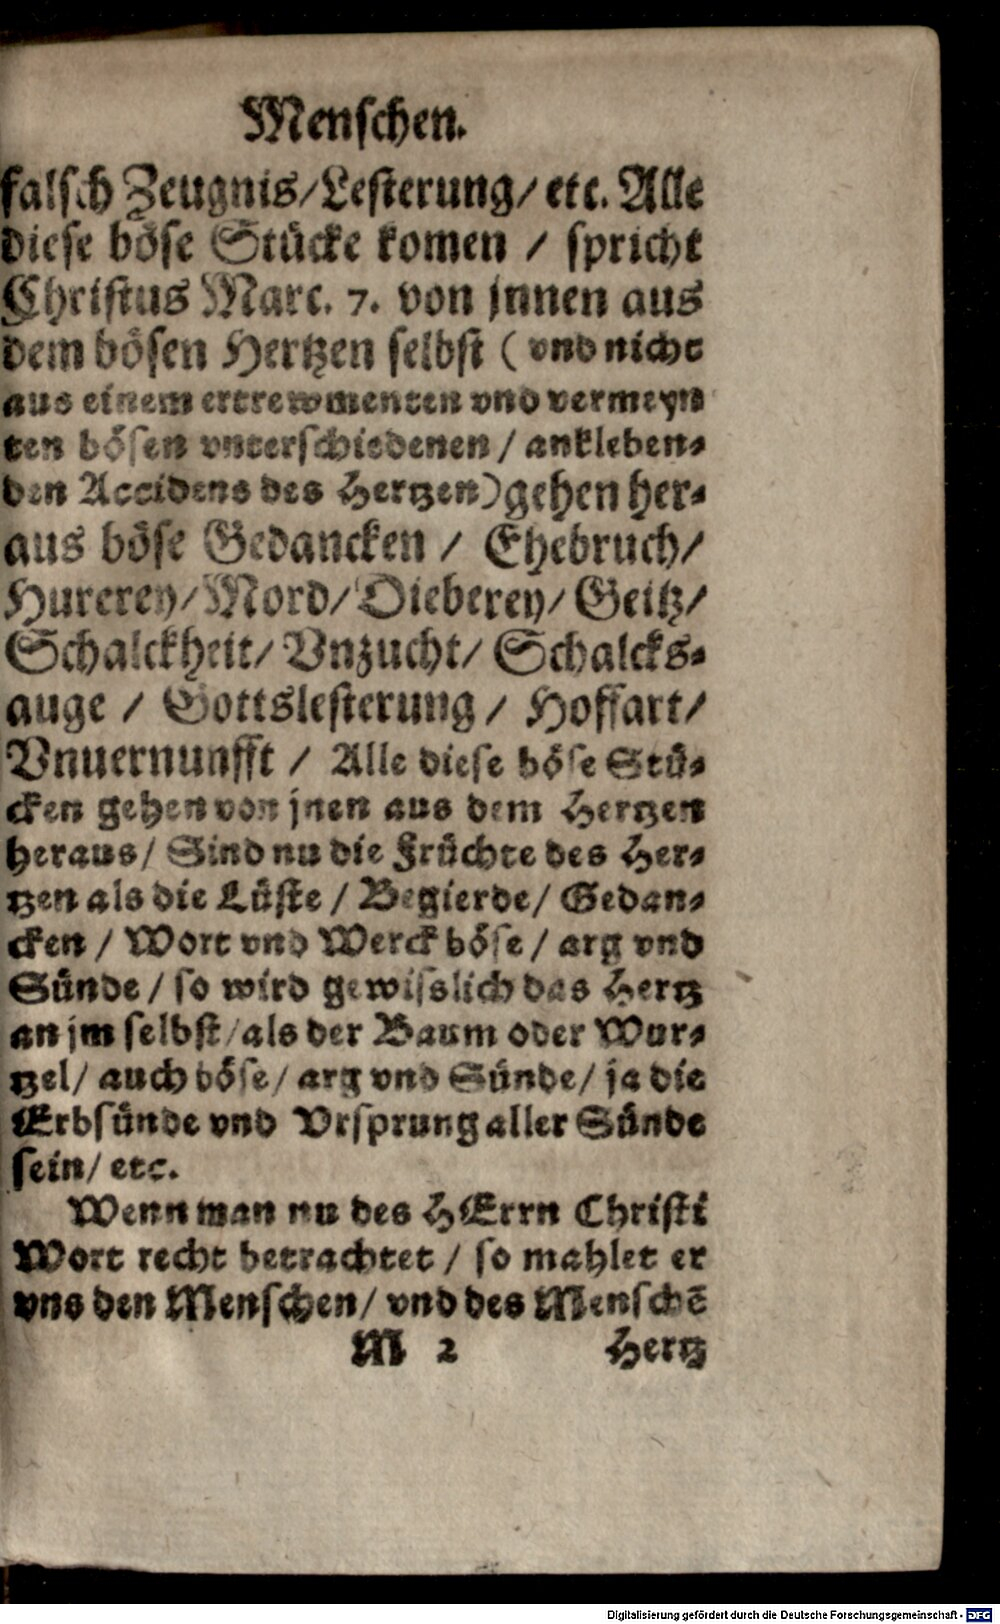 Menschen.
falsch Zeugnis/Lesterung/etc. Alle
diese böse Stücke komen / spricht
Christus Marc. 7. von jnnen aus
dem bösen Hertzen selbst ( vnd nicht
aus einem ertrewmenten vnd vermeyn
ten bösen vnterschiedenen / ankleben-
den Accidens des Hertzen) gehen her-
aus böse Gedancken / Ehebruch/
Hurerey/Mord/Dieberey/Geitz/
Schalckheit/Vnzucht/Schalcks-
auge / Gottslesterung / Hoffart/
Vnuernunfft / Alle diese böse Stü-
cken gehen von jnen aus dem Hertzen
heraus/ Sind nu die Früchte des Her-
tzen als die Lüste / Begierde/ Gedan-
cken / Wort vnd Werck böse / arg vnd
Sünde / so wird gewisslich das Hertz
an jm selbst/als der Baum oder Wur-
tzel/ auch böse/ arg vnd Sünde/ ja die
Erbsünde vnd Vrsprung aller Sünde
sein/ etc.
Wenn man nu des HErrn Christi
Wort recht betrachtet / so mahlet er
vns den Menschen/ vnd des Menschē
M 2 Hertz
Digitalisierung gefördert durch die Deutsche Forschungsgemeinschaft - DFG